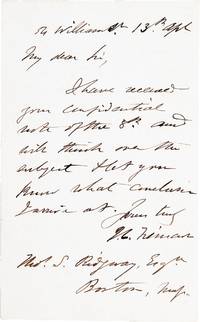 54 William St. 13th Apl
My dear Sir,
I have received
your confidential
note of the 8th. and
will think over the
subject & let you
know what conclusion
I arrive at. Yours truly
Thos. S. Ridgway, Esqr
Boston, Mass.